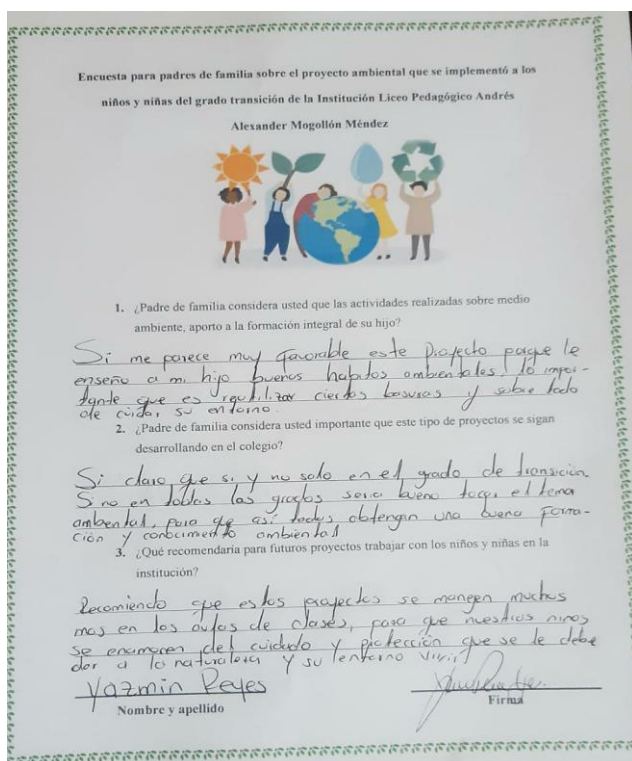 Encuesta para padres de familia sobre el proyecto ambiental que se implementó a los
niños y niñas del grado transición de la Institución Liceo Pedagógico Andrés
Alexander Mogollón Méndez
1. ¿Padre de familia considera usted que las actividades realizadas sobre medio
ambiente, aporto a la formación integral de su hijo?
Si me parece muy favorable este Proyecto porque le
enseño a mi hijo buenos habitos ambientales, lo impor-
tante que es reutilizar ciertas basuras y sobre todo
de cuidar su entorno.
2. ¿Padre de familia considera usted importante que este tipo de proyectos se sigan
desarrollando en el colegio?
Si claro que si y no solo en el grado de transición
Sino en todos los grados seria bueno tocar el tema
ambiental, para que asi todos obtengan una buena forma-
ción y conocimiento ambiental
3. ¿Qué recomendaría para futuros proyectos trabajar con los niños y niñas en la
institución?
Recomiendo que estos proyectos se manejen muchos
mas en los aulas de clases, para que nuestros niños
se enamoren del cuidado y protección que se le debe
dar a la naturaleza y su entorno
Yazmin Reyes
Nombre y apellido
Firma